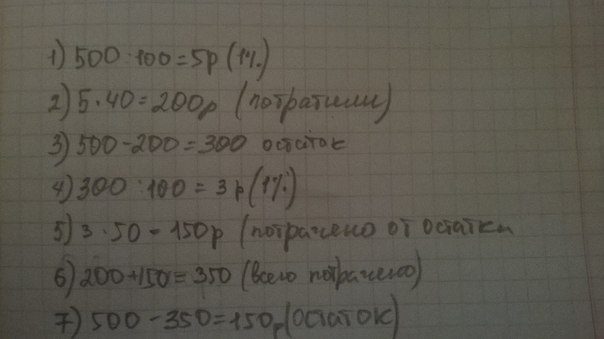 1) 500 : 100 = 5р (1%)
2) 5 · 40 = 200р (потратили)
3) 500 - 200 = 300 остаток
4) 300 : 100 = 3р (1%)
5) 3 · 50 = 150р (потрачено от остатки
6) 200 + 150 = 350 (всего потрачено)
7) 500 - 350 = 150р (остаток)